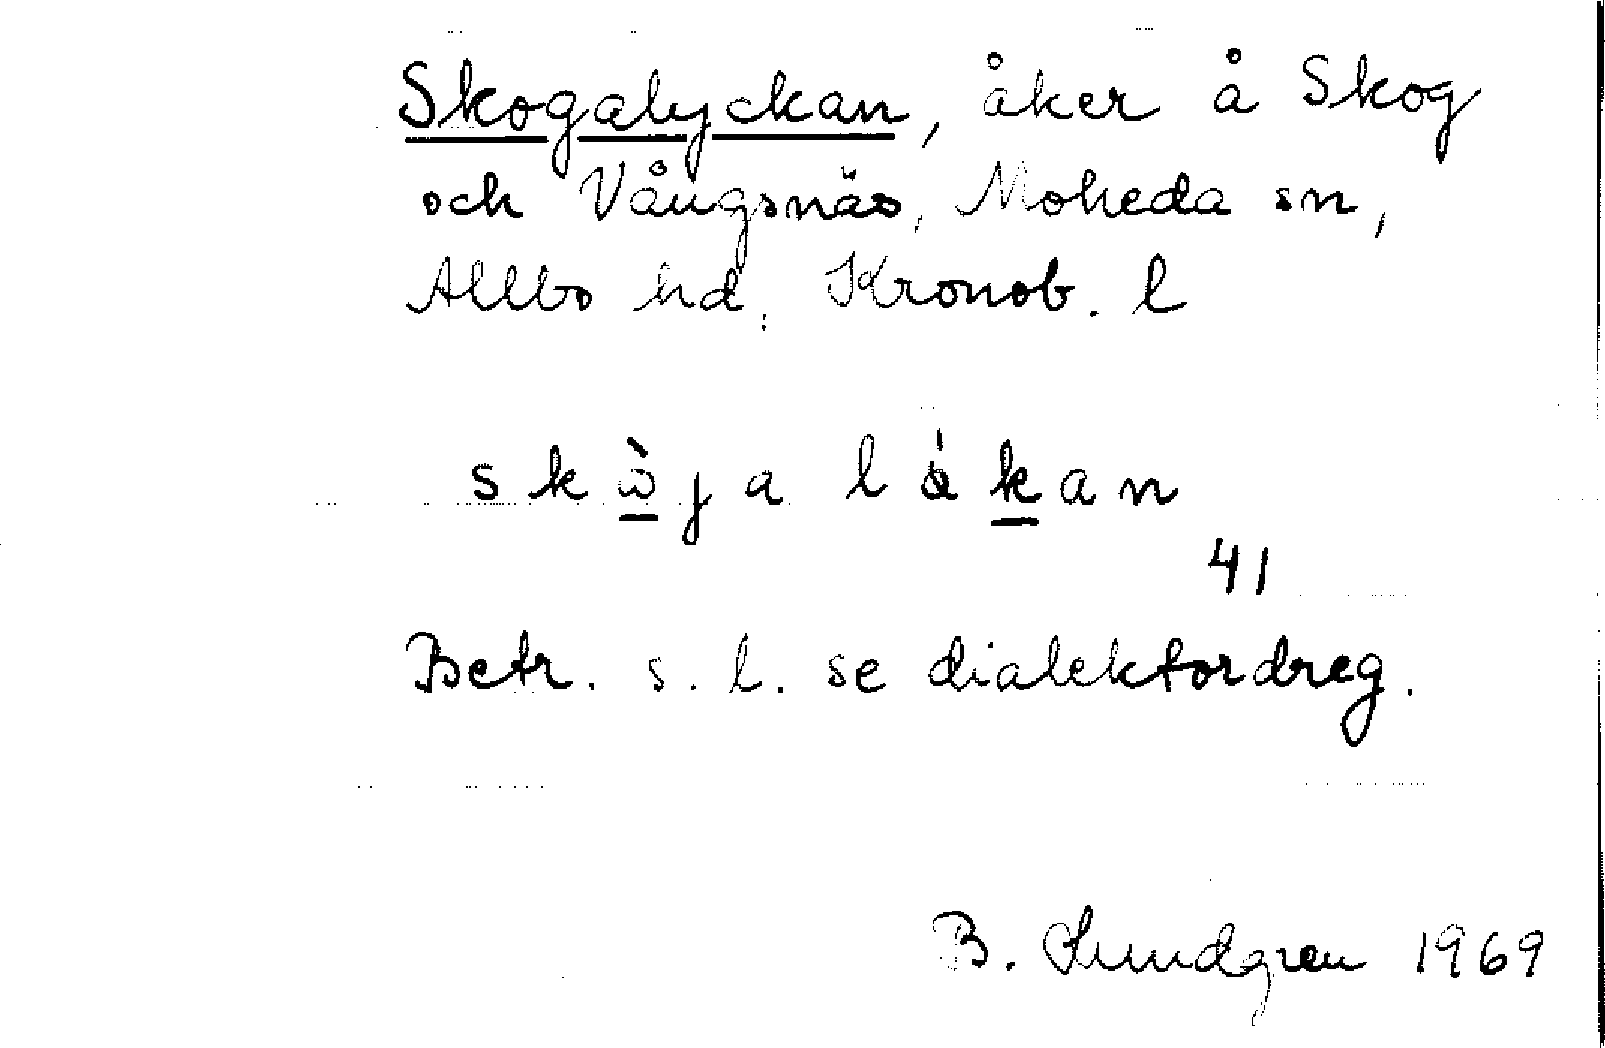 Skogalyckan, åker å Skog
och Vångsnäs, Moheda sn,
Allbo hd. Kronob. l
skὼjalákan
41
Betr. s. l. se dialektordreg.
B. Lundgren 1969